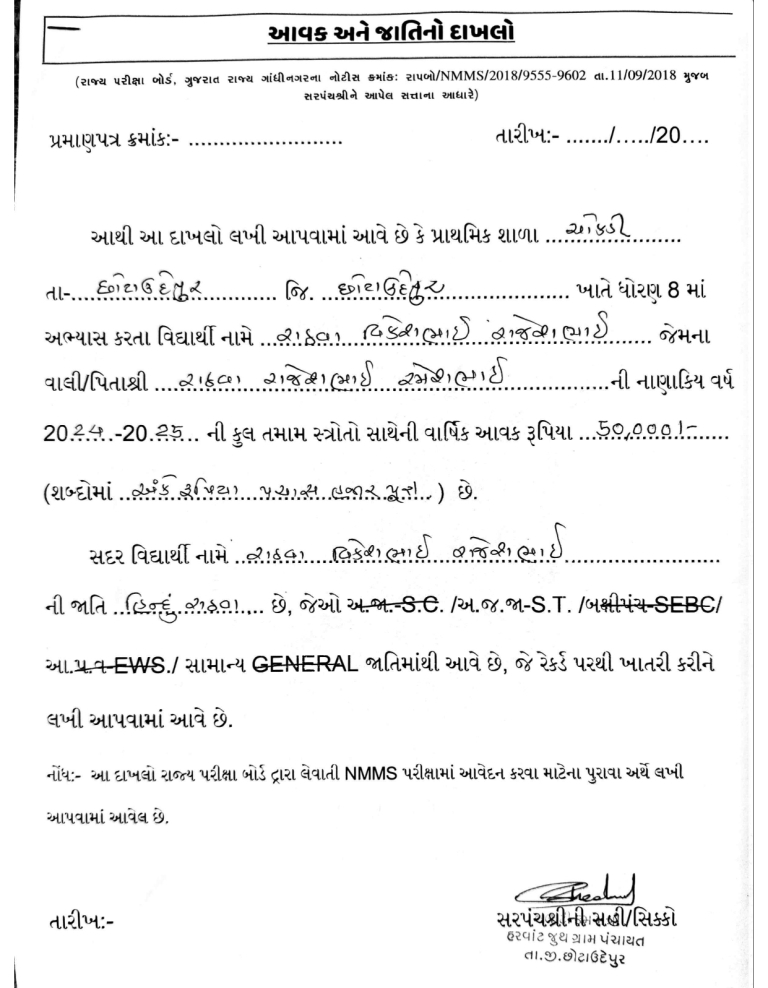 આવક અને જાતિનો દાખલો
(રાજ્ય પરીક્ષા બોર્ડ, ગુજરાત રાજ્ય ગાંધીનગરના નોટીસ ક્રમાંકઃ રાપબો/NMMS/2018/9555-9602 તા.11/09/2018 મુજબ
સરપંચશ્રીને આપેલ સત્તાના આધારે)
પ્રમાણપત્ર ક્રમાંક:- .......................... તારીખ:- ......./...../20....
આથી આ દાખલો લખી આપવામાં આવે છે કે પ્રાથમિક શાળા ...
તા-....છોટાઉદેપુર............ જિ. ...છોટાઉદેપુર.................... ખાતે ધોરણ 8 માં
અભ્યાસ કરતા વિદ્યાર્થી નામે ...રાઠવા વિકેશભાઈ રાજેશભાઈ....... જેમના
વાલી/પિતાશ્રી ....રાઠવા રાજેશભાઈ રમેશભાઈ................ની નાણાકિય વર્ષ
20.24..-20.25... ની કુલ તમામ સ્ત્રોતો સાથેની વાર્ષિક આવક રૂપિયા ...50,000/-......
(શબ્દોમાં ..અંકે રૂપિયા પચાસ હજાર પૂરા..) છે.
સદર વિદ્યાર્થી નામે ..રાઠવા....વિકેશભાઈ રાજેશભાઈ......................
ની જાતિ ..હિન્દું રાઠવા.... છે, જેઓ અ.જા.-S.C. /અ.જ.જા-S.T. /બક્ષીપંચ-SEBC/
આ.પ્ર.વ-EWS./ સામાન્ય GENERAL જાતિમાંથી આવે છે, જે રેકર્ડ પરથી ખાતરી કરીને
લખી આપવામાં આવે છે.
નોંધ:- આ દાખલો રાજ્ય પરીક્ષા બોર્ડ દ્રારા લેવાતી NMMS પરીક્ષામાં આવેદન કરવા માટેના પુરાવા અર્થે લખી
આપવામાં આવેલ છે.
તારીખ:- સરપંચશ્રીની સહી/સિક્કો
હરવાંટ જુથ ગ્રામ પંચાયત
તા.જી.છોટાઉદેપુર